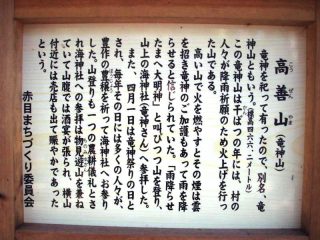 高善山（竜神山）
竜神を祀って有ったので、別名、竜
神山ともいう。（標高四六六.二メートル）
この竜神山は干ばつの年には、村の
人々が降雨祈願のため火上げを行っ
た山である。
高い山で火を燃やすとその煙は雲
を招き竜神のご加護もあって雨を降
らせると信じられていた。「雨降らせ
たまへ大明神」と叫びつつ山を登り、
山上の海神社（竜神さん）へ参拝した。
また、四月一日は竜神祭りの日と
され、毎年その日には多くの人々が、
豊作の豊穣を祈って海神社へお参り
した。山登りも一つの農耕儀礼とさ
れ海神社への参拝は物見遊山を兼ね
ていて山腹では酒宴が張られ、横山
付近には売店も出て賑やかであった
という。
赤目まちづくり委員会